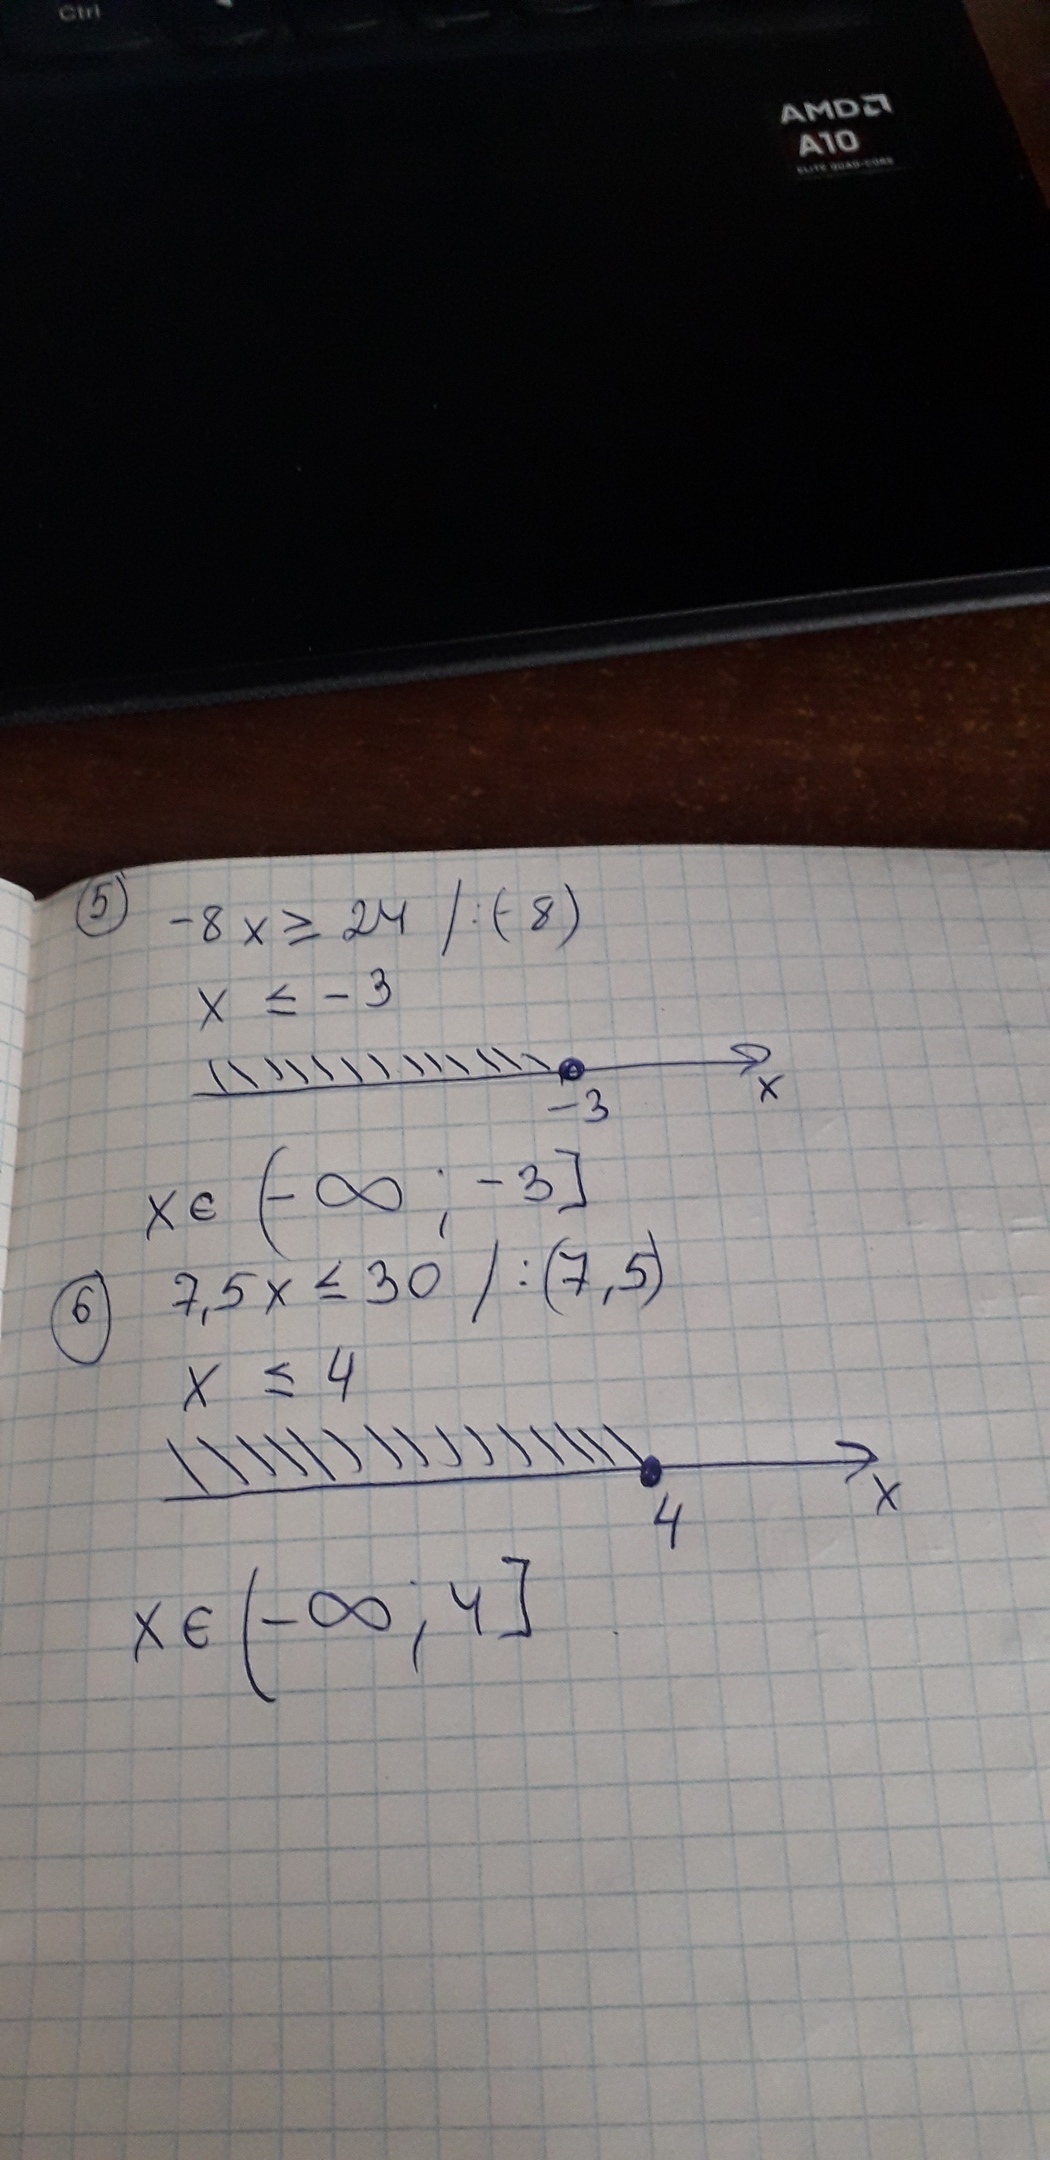 Ctrl
AMD
A10
ELITE QUAD-CORE
5 -8x ≥ 24 /:(-8)
x ≤ -3
-3 x
x∈ (-∞; -3]
6 7,5x ≤ 30 /:(7,5)
x ≤ 4
4 x
x∈(-∞; 4]